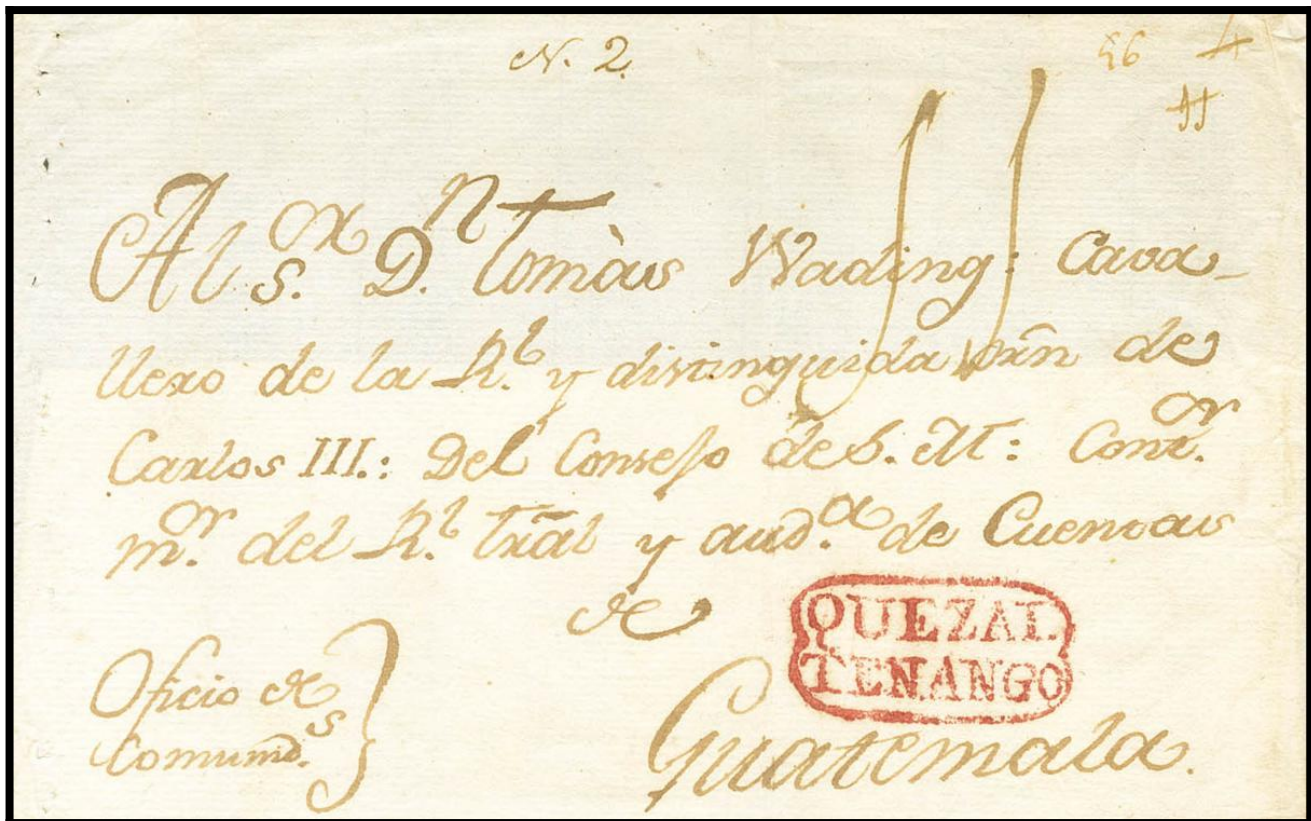 N. 2.
56 4
Al s.or D.n Tomàs Wading: Cava-
llero de la R.l y distinguida òrn de
Carlos III.: Del Consejo de S. M: Cont.or
m.or del R.l tràl y aud.a de Cuentas
de
QUEZAL
TENANGO
Oficio de
Comunid.s
Guatemala.